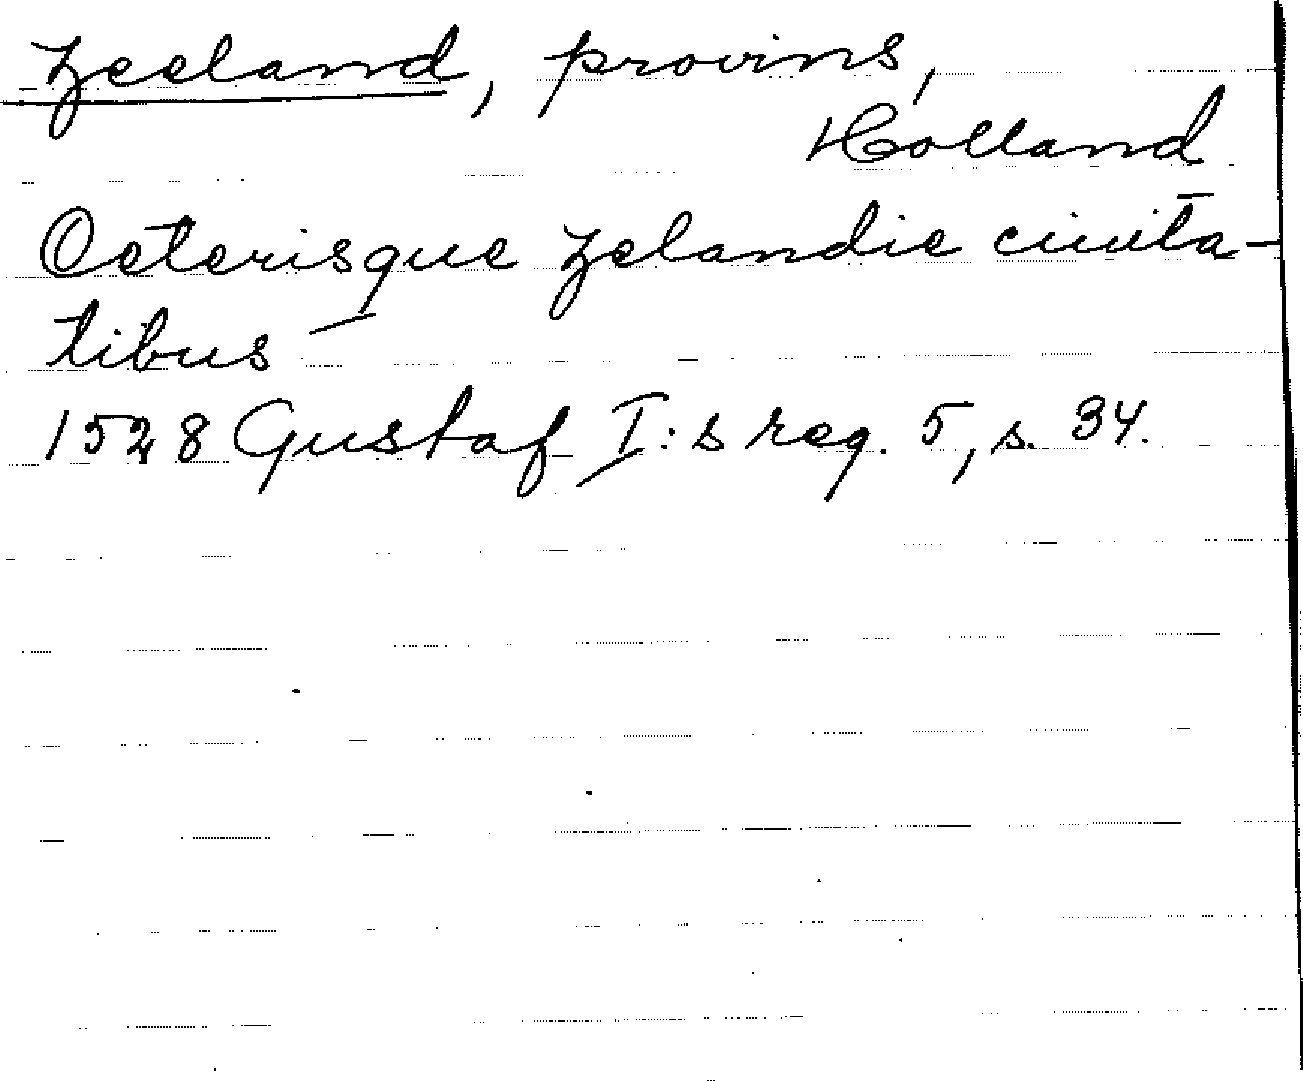 Zeeland, provins,
Holland
Ceterisque Zelandie ciuita-
tibus
1528 Gustaf I:s reg. 5, s. 34.